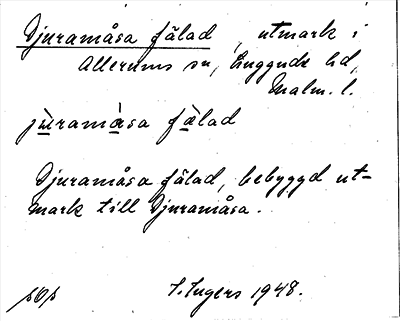 Djuramåsa fälad, utmark i
Allerums sn, Luggude hd,
Malm. l.
jùramàsa fàlad
Djuramåsa fälad, bebyggd ut-
mark till Djuramåsa.
I. Ingers 1948.